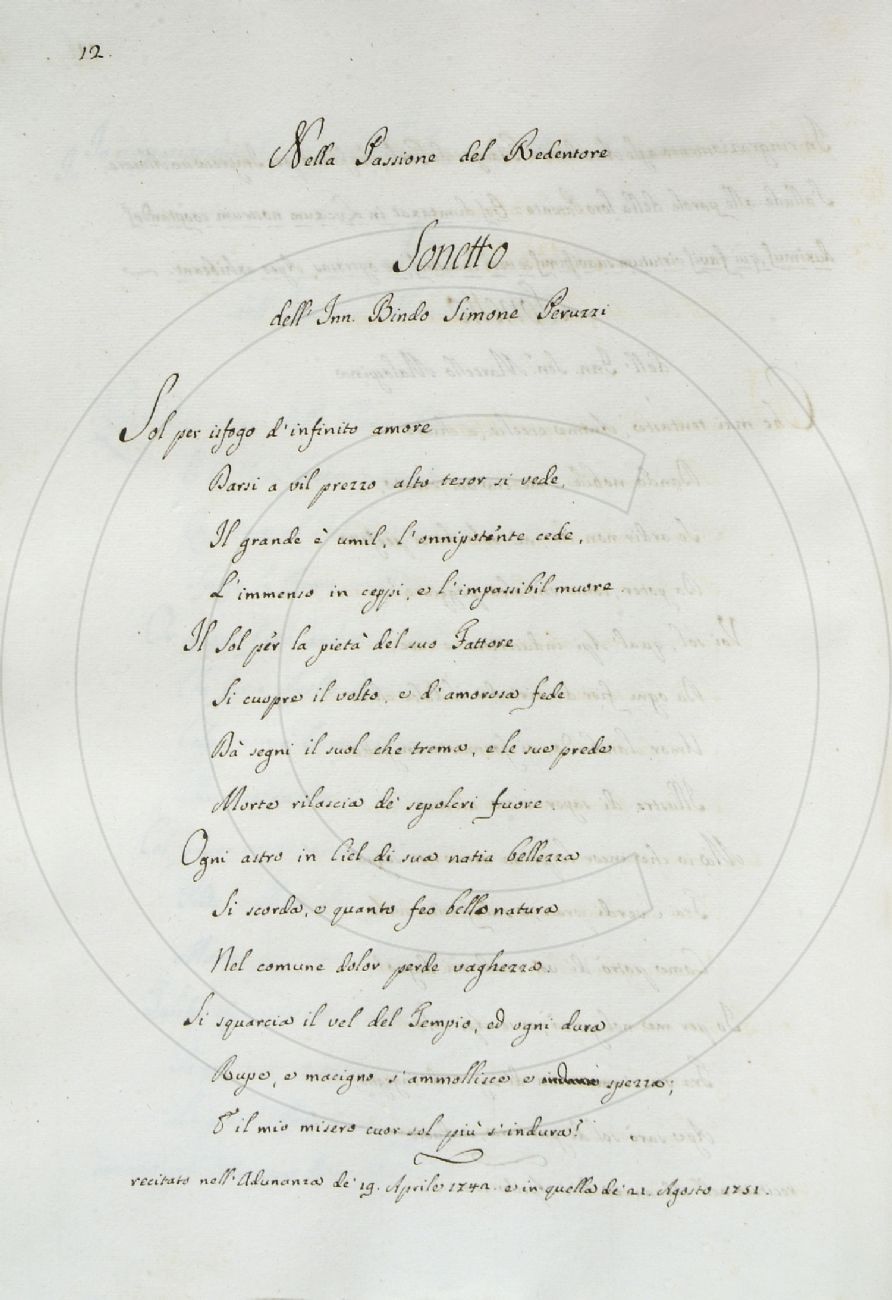 12.
Nella Passione del Redentore
Sonetto
dell' Inn. Bindo Simone Peruzzi
Sol per isfogo d'infinito amore
Darsi a vil prezzo alto tesor si vede,
Il grande è umil, l'onnipotente cede,
L'immenso in ceppi, e l'impassibil muore.
Il Sol per la pietà del suo Fattore
Si cuopre il volto, e d'amorosa fede
Dà segni il suol che trema, e le sue prede
Morte rilascia de' sepolcri fuore.
Ogni astro in Ciel di sua natia bellezza
Si scorda, e quanto feo bella natura
Nel comune dolor perde vaghezza.
Si squarcia il vel del Tempio, ed ogni dura
Rupe, e macigno s'ammollisce e spezza;
E il mio misero cuor sol più s'indura!
recitato nell'Adunanza de' 19. Aprile 1742. e in quella de' 21. Agosto 1751.